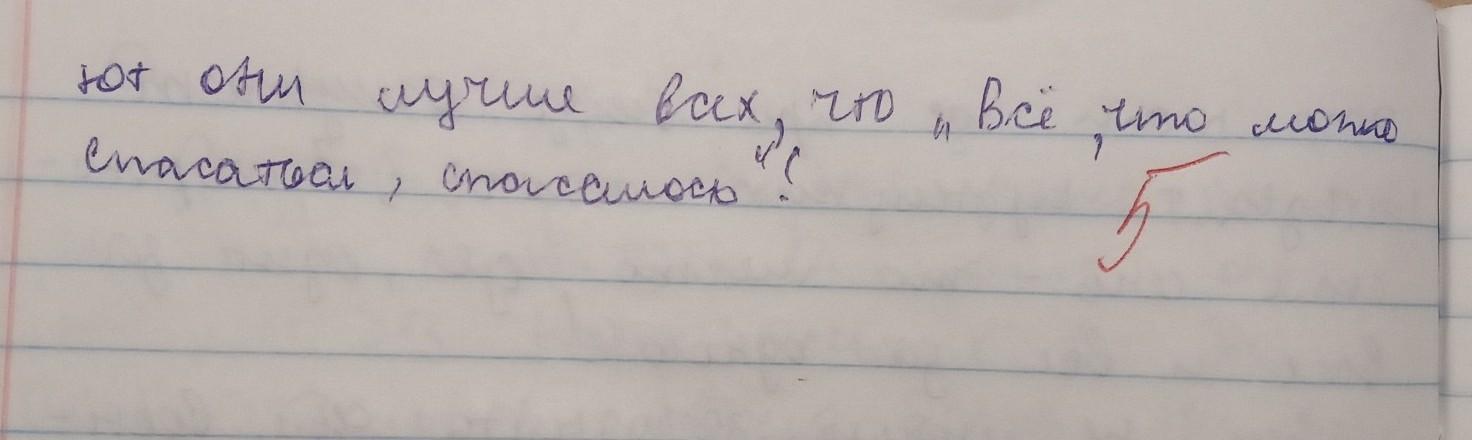 ют они лучше всех, что „Всё, что можно
спасаться, спасалось"!
5